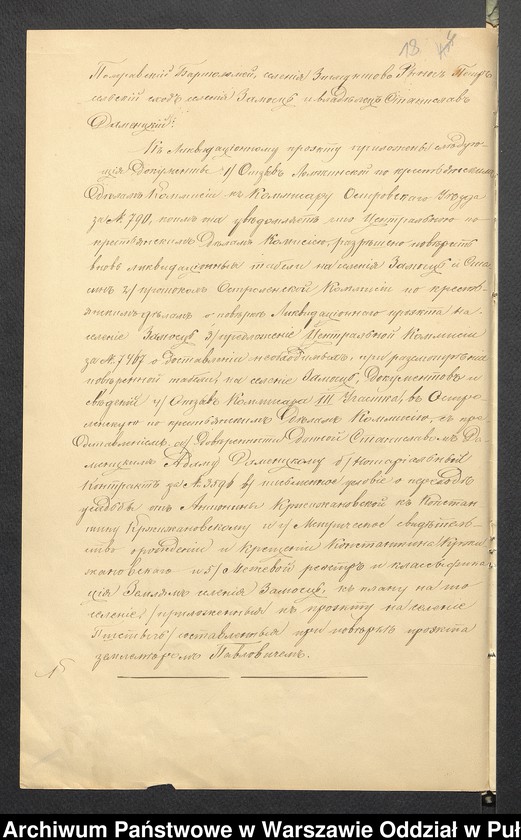 18
Домбровскій Бартоломей, селенія
селеній Замосць и владѣлецъ Станиславъ
Даменцкій.
Къ Ликвидаціонному проэкту приложены слѣдую-
щія Документы: 1/ Отзывъ Ломжинской по крестьянскимъ
Дѣламъ Коммисіи къ Коммисару Островскаго Уѣзда
за № 790, коимъ она увѣдомляетъ что Центральная по
крестьянскимъ Дѣламъ Комисія, разрѣшено повѣрить
вновь ликвидаціонныя табели на селенія Замосць и
2/ протоколъ Остроленской Коммисіи по кресть-
янскимъ дѣламъ о повѣркѣ Ликвидаціоннаго проэкта на
селеніе Замосць 3/ предложеніе Центральной Коммисіи
за № 7467 о доставленіи необходимыхъ, при разсмотрѣніи
повѣренной табели, на селеніе Замосць, Документовъ и
свѣдѣній 4/ Отзывъ Коммисара III Участка, въ Остро-
ленскую по крестьянскимъ Дѣламъ Коммисію, съ пре-
доставленіемъ, а/ Доверенности данной Станиславомъ Да-
менцкимъ Адаму Даменцкому б/ Нотаріальный
Контрактъ за № 3596 в/ письменное условіе о переходѣ
усадьбы отъ Антонины Кржижановской къ Констан-
тину Кржижановскому и г/ Метрическое свидѣтель-
ство о рожденіи и крещеніи Константина Кржи-
жановскаго и 5/ Межевой реэстръ и классифика-
ція Землямъ селенія Замосць, къ плану на то
селеніе /приложенныя къ проэкту на селеніе
/ составленныя при повѣркѣ проэкта
землемѣромъ Павловичемъ.
Archiwum Państwowe w Warszawie Oddział w Puł